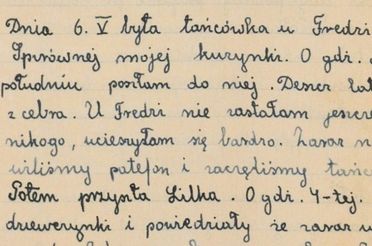 Dnia 6. V była tańcówka u Fredzi
Spirównej mojej kuzynki. O gdz.
południu poszłam do niej. Deszcz lał
z cebra. U Fredzi nie zastałam jeszcze
nikogo, ucieszyłam się bardzo. Zaraz na
wiliśmy patefon i zaczęliśmy tańc
Potem przyszła Lilka. O gdz. 4-tej.
dziewczynki i powiedziały że zaraz w